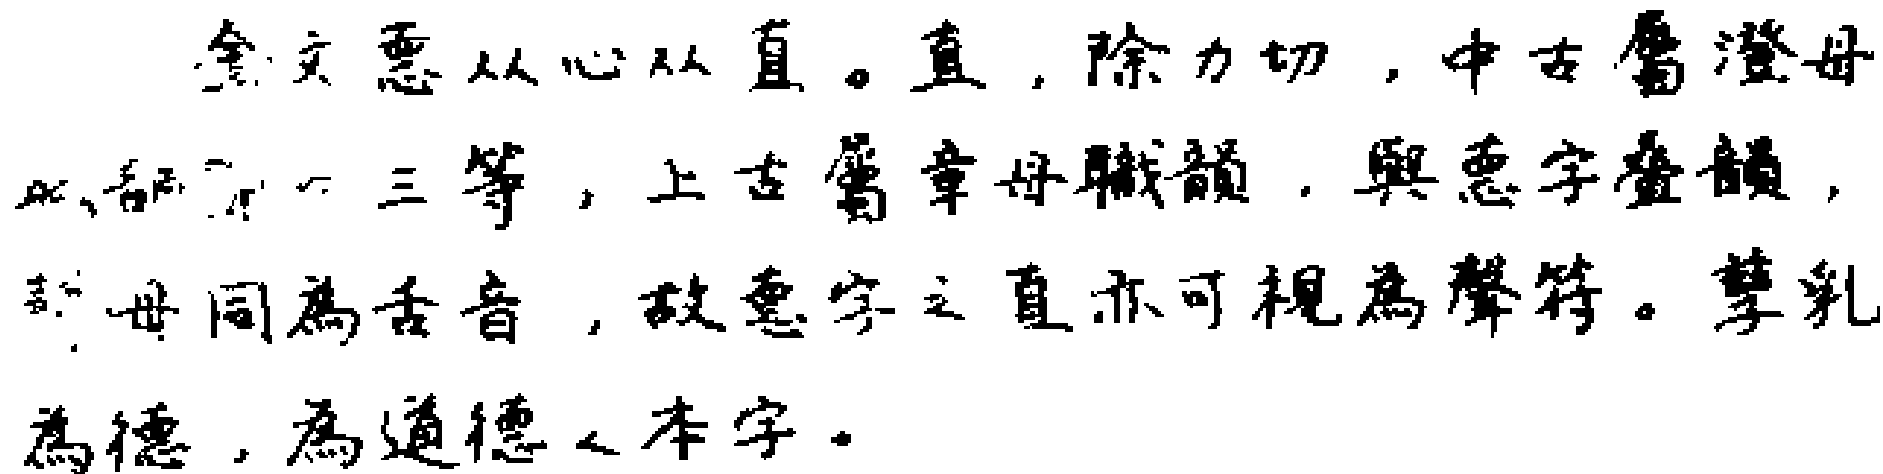 金文惪从心从直。直，除力切，中古屬澄母
職韻開口三等，上古屬章母職韻，與惪字疊韻，
聲母同為舌音，故惪字之直亦可視為聲符。孳乳
為德，為道德之本字。